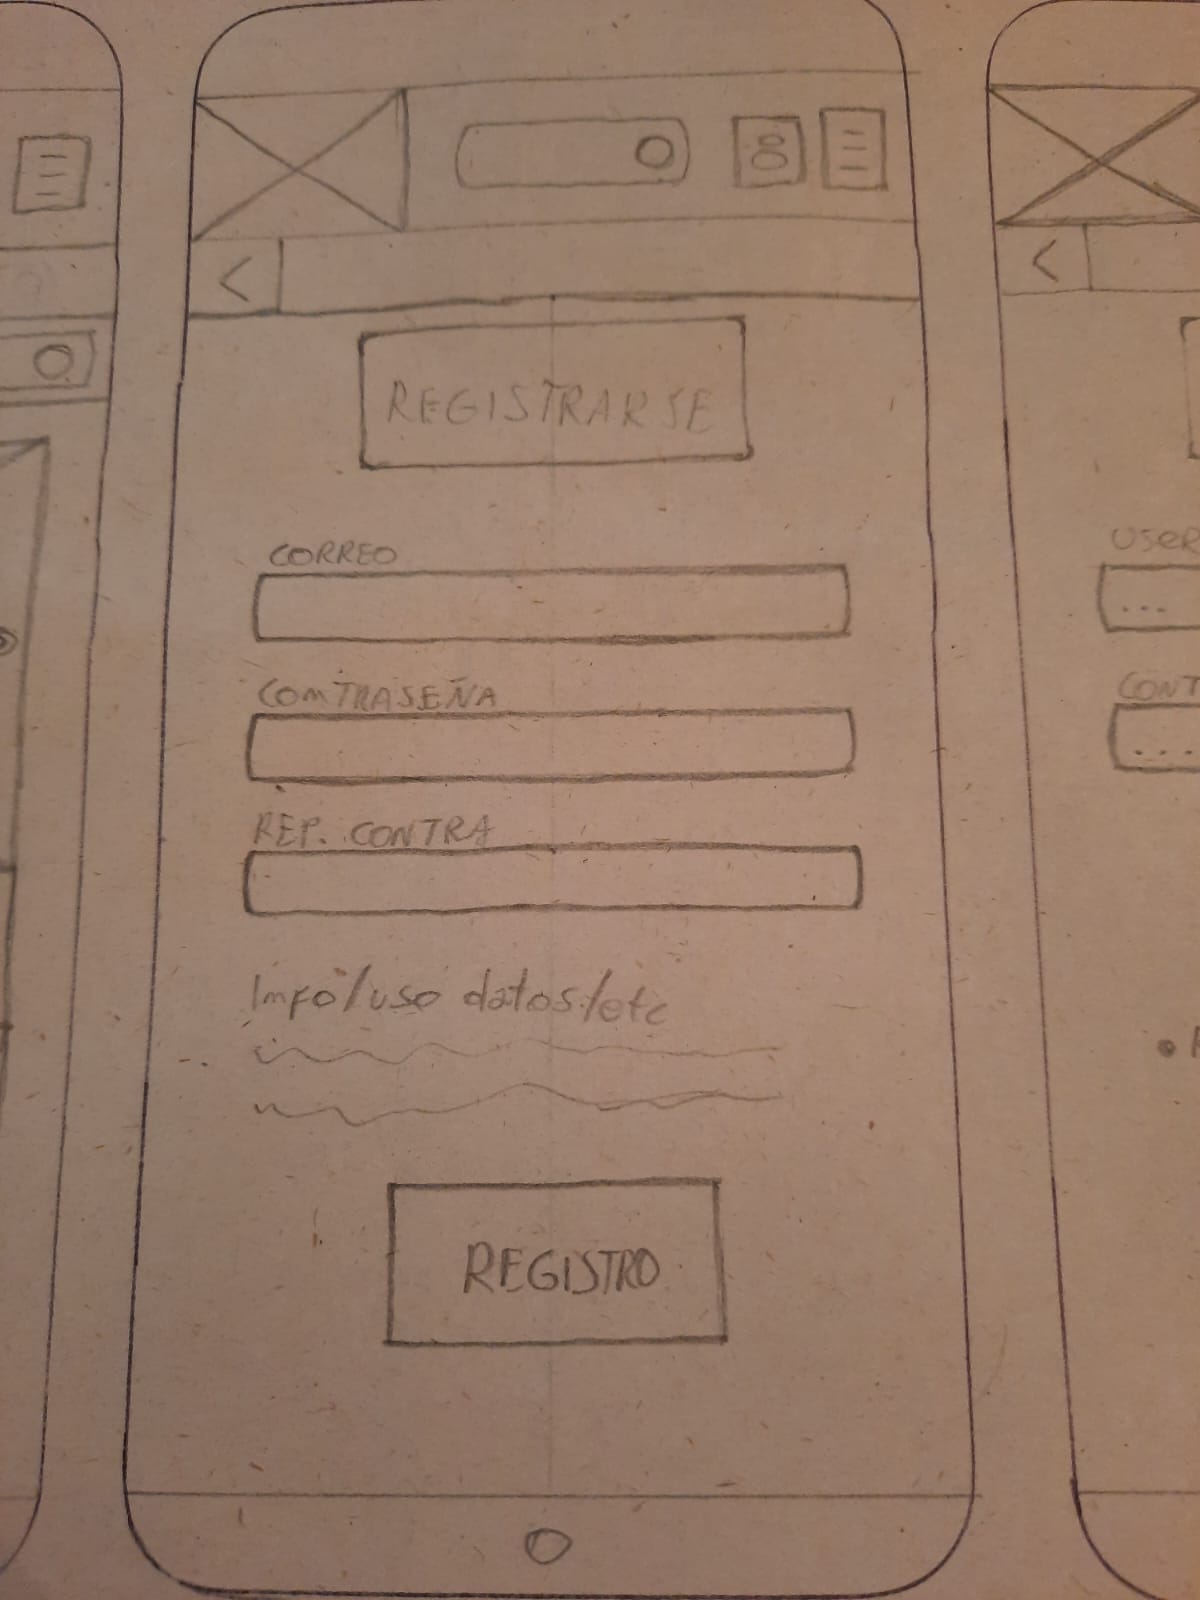 REGISTRARSE
CORREO
COMTRASEÑA
REP. CONTRA
Info/uso datos/etc
REGISTRO
USER
...
CONT
....